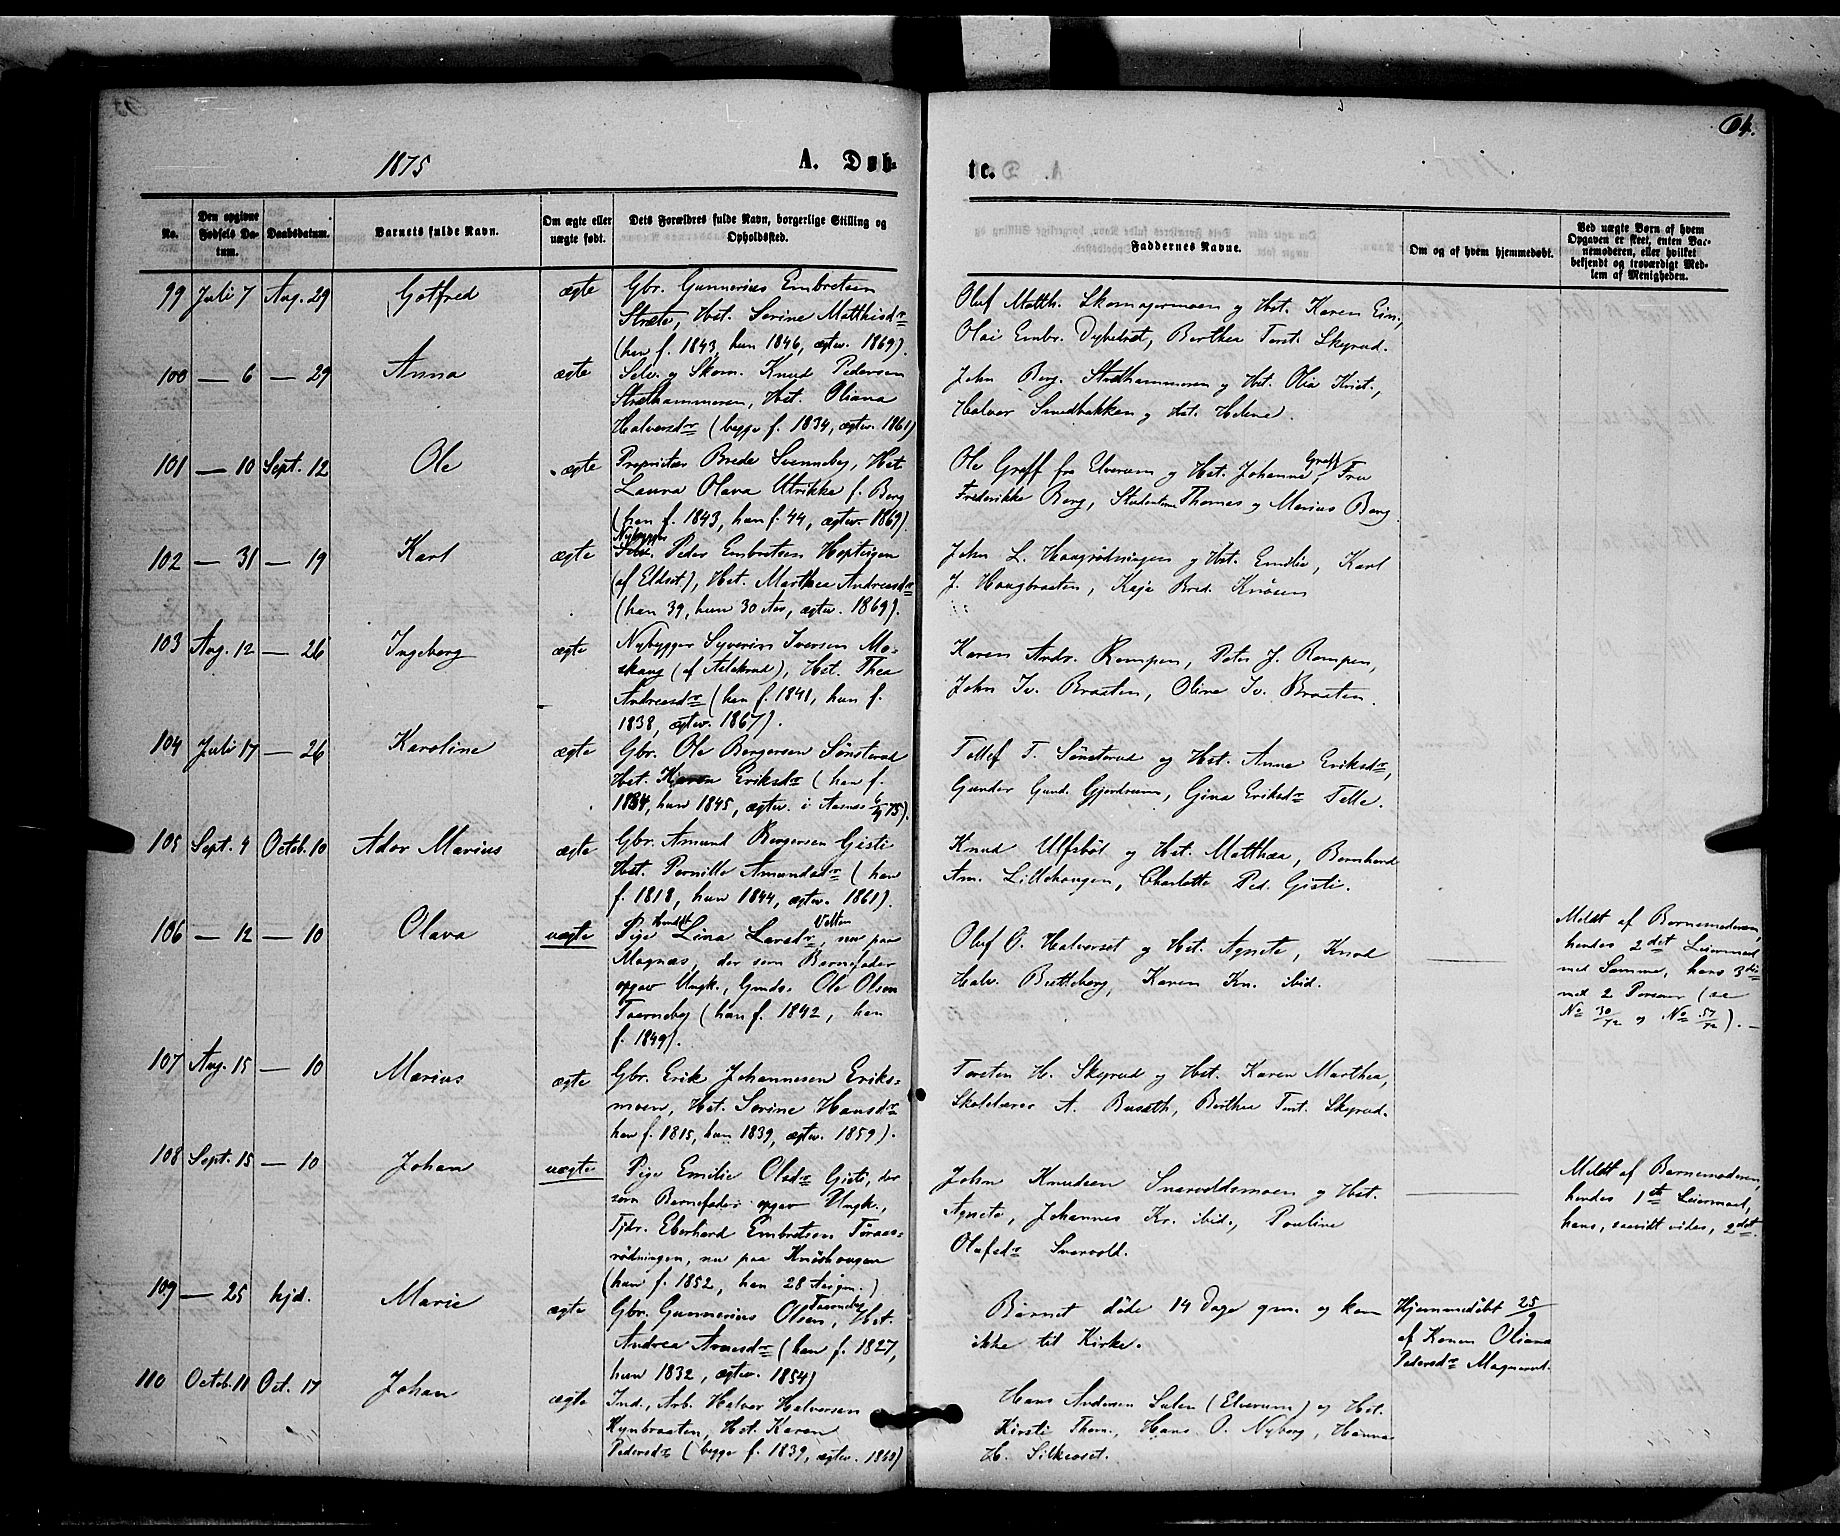 64.
1875
A. Døb-
te.
No.
Den opgivne Fødsels Datum.
Daabsdatum.
Barnets fulde Navn.
Om ægte eller uægte født.
Dets Forældres fulde Navn, borgerlige Stilling og Opholdssted.
Faddernes Navne.
Om og af hvem hjemmedøbt.
Ved uægte Børn af hvem Opgaven er skeet, enten Barnemoderen, eller hvilket bekjendt og troværdigt Medlem af Menigheden.
99 Juli 7 Aug. 29 Gotfred ægte
Gbr. Gunnerius Embretsen
Stræte, Hst. Serine Matthisdr
(han f. 1843, hun 1846, ægtev. 1869).
Oluf Matth. Skomagermoen og Hst. Karen Ein.,
Olai Embr. Dybelræt, Berthea Torst. Skyrud.
100 — 6 — 29 Anna ægte
Selv. og Skom. Knud Pedersen
Stræthammeren, Hst. Oliana
Halvorsdr (begge f. 1834, ægtev. 1861)
John Berg. Stræthammeren og Hst. Olia Krist.,
Halvor Smedbakken og Hst. Helene.
101 — 10 Sept. 12 Ole ægte
Proprietær Brede Svenneby, Hst.
Laura Olava Ulrikke f. Berg
(han f. 1843, hun f. 44, ægtev. 1869).
Ole Greff fra Elverum og Hst. Johanne Greff, Fru
Frederikke Berg, Studenterne Thomas og Marius Berg.
102 — 31 — 19 Karl ægte
Nybygger
Peder Embretsen Hopteigen
(af Eldset), Hst. Marthea Andreasdr
(han 39, hun 30 Aar, ægtev. 1869).
John L. Haugrødningen og Hst. Emilie, Karl
J. Haugbraaten, Kaja Bred. Knøsen
103 Aug. 12 — 26 Ingeborg ægte
Nybygger Syverin Iversen Mo-
skaug (af Adskrud), Hst. Thea
Andreasdr (han f. 1841, hun f.
1838, ægtev. 1867).
Karen Andr. Rompen, Peter J. Rompen,
John Iv. Braaten, Oline Iv. Braaten
104 Juli 17 — 26 Karoline ægte
Gbr. Ole Bergersen Sønsterud
Hst. Karen Eriksdr (han f.
1834, hun 1845, ægtev. i Aasnes 6/4 75).
Tollef T. Sønsterud og Hst. Anne Eriksdr,
Gunder Gund. Gjerdrum, Gina Eriksdr Telle.
105 Sept. 4 Octob. 10 Ador Marius ægte
Gbr. Amund Bergersen Gisti
Hst. Pernille Amundsdr (han
f. 1818, hun 1844, ægtev. 1861).
Knud Ulfsbøl og Hst. Matthea, Bernhard
Am. Lillehaugen, Charlotte Ped. Gisti.
106 — 12 — 10 Olava uægte
Pige Lina Larsdr Velten, nu paa
Magnæs, der som Barnefader
opgav Ungk., Gmds. Ole Olsen
Taarneby (hun f. 1842, han
f. 1849).
Oluf O. Halvorset og Hst. Agnete, Knud
Halv. Butteberg, Karen Kn. ibid.
Meldt af Barnemoderen,
hendes 2det Leiermaal
med Samme, hans 3die
med 2 Personer (se
No 30/72 og No 57/72). —
107 Aug. 15 — 10 Marius ægte
Gbr. Erik Johannesen Eriks-
moen, Hst. Serine Hansdr
han f. 1815, hun 1839, ægtev. 1859).
Torsten H. Skyrud og Hst. Karen Marthea,
Skolelærer A. Busæth, Berthea Torst. Skyrud.
108 Sept. 15 — 10 Johan uægte
Pige Emilie Olsdr Gisti, der
som Barnefader opgav Ungk.,
Tjdr. Eberhard Embretsen Føraas-
rødningen, nu paa Knøshaugen
(hun f. 1852, han 28 Aar gm.)
John Knudsen Snarvoldsmoen og Hst.
Agnete, Johannes Kr. ibid., Pauline
Olafsdr Snarvold.
Meldt af Barnemoderen,
hendes 1ste Leiermaal,
hans, saavidt vides, 2det.
109 — 25 hjd. Marie ægte
Gbr. Gunnerius Olsen Taarneby, Hst.
Andrea Arnesdr (han f. 1827,
hun 1832, ægtev. 1854)
Barnet døde 14 Dage gm. og kom
ikke til Kirke.
Hjemmedøbt 25/9
af Konen Oliana
Pedersdr Magnæset.
110 Octob. 11 Oct. 17 Johan ægte
Ind., Arb. Halvor Halvorsen
Kynbraaten, Hst. Karen
Pedersdr (begge f. 1839, ægtev. 1863)
Hans Andersen Sulen (Elverum) og Hst.
Kirsti Thorn., Hans O. Nyborg, Hanna
H. Silkeoset.